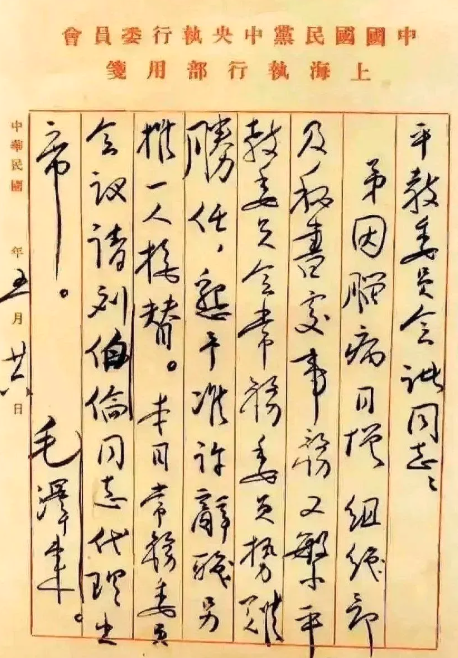 中國國民黨中央執行委員會
上海執行部用箋
平教委员会诸同志：
弟因腦病日增组織部
及秘書处事務又繁平
教委员会常務委员勢難
勝任，懇予准许辭職另
推一人接替。本日常務委员
会议请刘伯倫同志代理出
席。 毛澤東。
中華民國 年五月廿六日